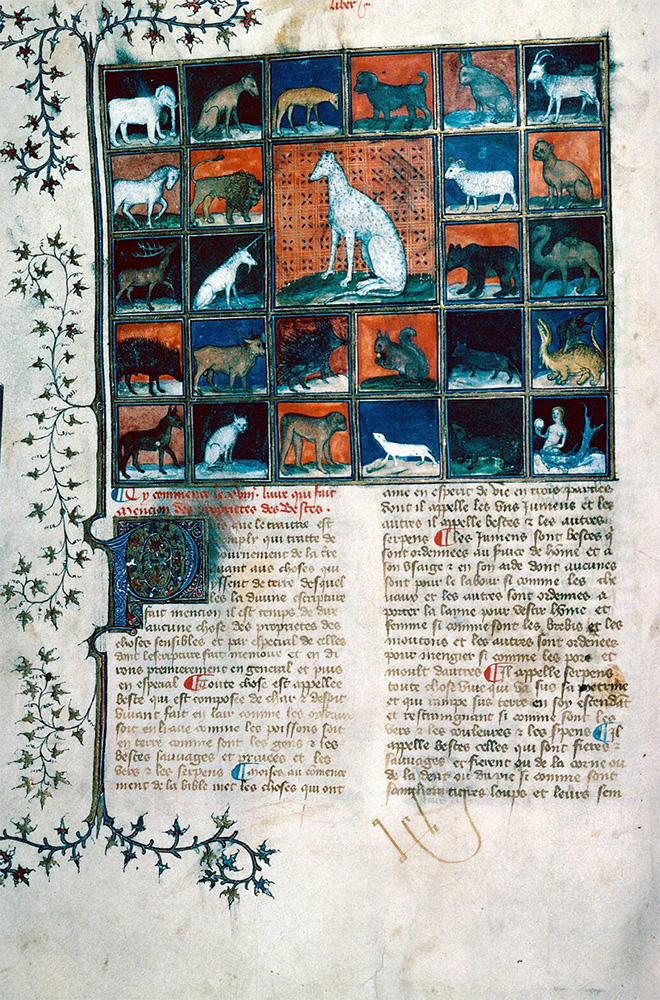 liber
Cy commence le xviij. livre qui fait
mencion des proprietes des bestes.
Puis que le traittie est
comply qui traitte de
lournement de la tre
quant aus choses qui
yssent de terre desquel
les la divine escripture
fait mencion il est temps de dire
aucune chose des proprietes des
choses sensibles et par especial de elles
dont lescripture fait memoire et en di
rons premierement en general et puis
en especial Toute chose est appellee
beste qui est composee de char et desprit
vivant soit en lair comme les oyseaux
soit en leaue comme les poissons soit
en terre comme sont les gens et les
bestes sauvages et privees et les
vers et les serpens Moises au comence
ment de la bible met les choses qui ont
ame en esperit de vie en trois parties
dont il appelle les uns jumens et les
autres il appelle bestes et les autres
serpens Les jumens sont bestes q
sont ordennees au service de lome et a
son usaige et en son aide dont aucunes
sont pour le labour si comme les che
vaux et les autres sont ordennes a
porter la layne pour vestir home et
femme si comme sont les brebis et les
moutons et les autres sont ordenees
pour mengier si comme les pors et
moult dautres Il appelle serpens
toute chose vive qui va sus sa poitrine
et qui rampe sus terre en soy estendat
et restraignant si comme sont les
vers et les couleuvres et les sipens Il
appelle bestes celles qui sont fieres et
sauvages et fierent ou de la corne ou
de la dent ou du pie si comme sont
sangliers tigres loups et leurs sem